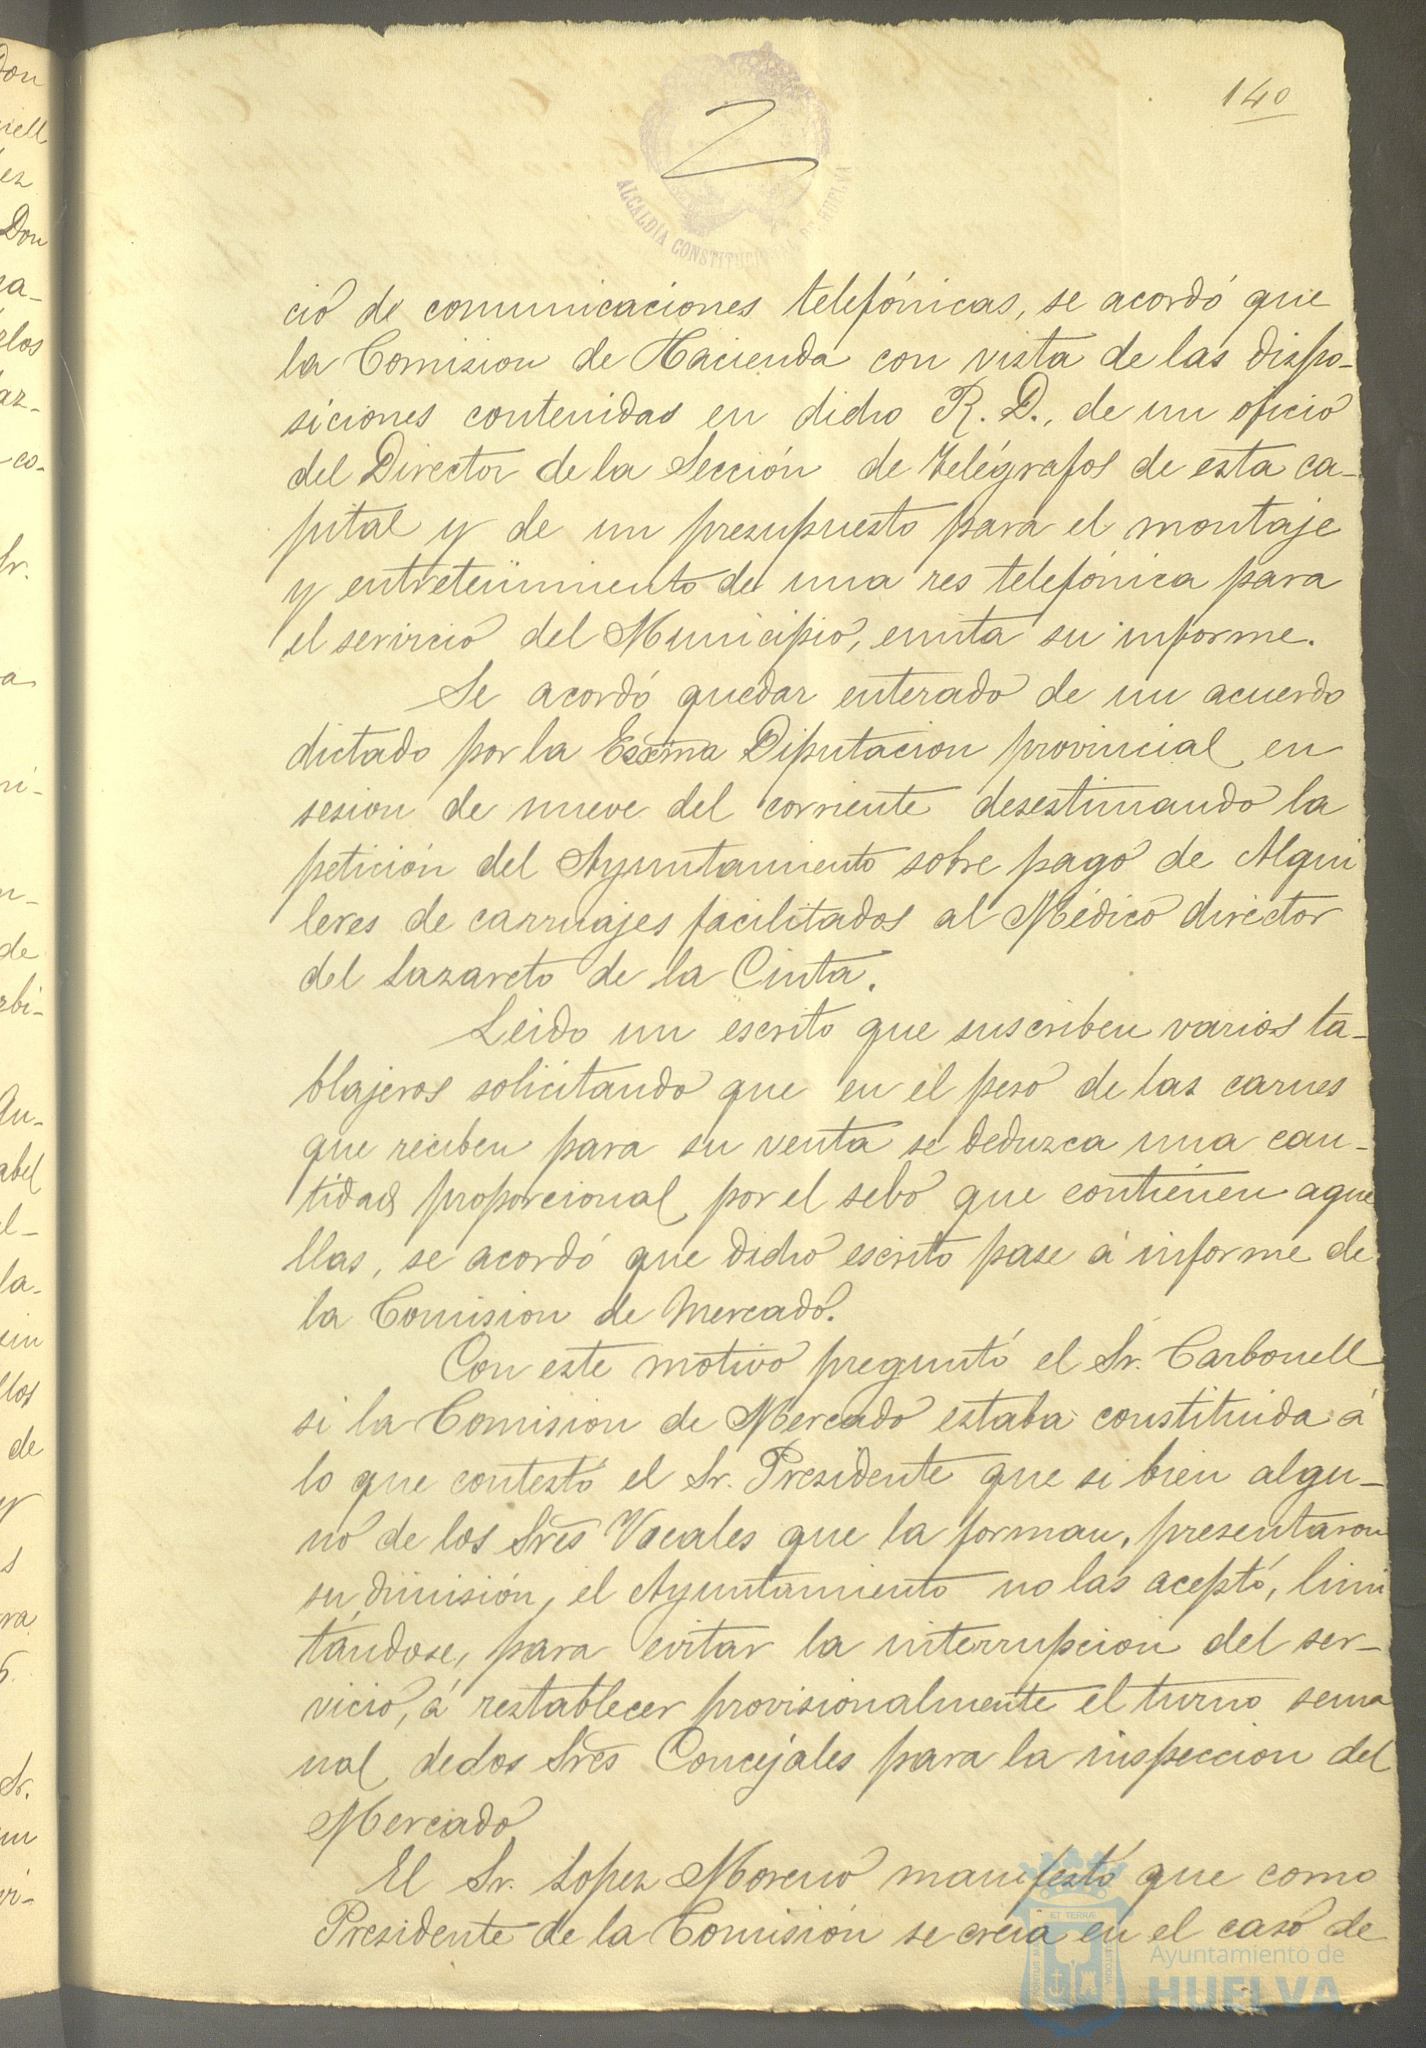 140
ALCALDÍA CONSTITUCIONAL DE HUELVA
cio de comunicaciones telefónicas, se acordó que
la Comision de Hacienda con vista de las dispo-
siciones contenidas en dicho R. D., de un oficio
del Director de la Sección de Telégrafos de esta ca-
pital y de un presupuesto para el montaje
y entretenimiento de una res telefónica para
el servicio del Municipio, emita su informe.
Se acordó quedar enterado de un acuerdo
dictado por la Excma Diputacion provincial en
sesion de nueve del corriente desestimando la
petición del Ayuntamiento sobre pago de Alqui
leres de carruajes facilitados al Médico director
del Lazareto de la Cinta.
Leido un escrito que suscriben varios ta-
blajeros solicitando que en el peso de las carnes
que reciben para su venta se deduzca una can-
tidad proporcional por el sebo que contienen aque
llas, se acordó que dicho escrito pase á informe de
la Comision de Mercado.
Con este motivo preguntó el Sr. Carbonell
si la Comision de Mercado estaba constituida á
lo que contestó el Sr. Presidente que si bien algu-
no de los Sres Vocales que la forman, presentaron
su dimisión, el Ayuntamiento no las aceptó, limi
tándose, para evitar la interrupcion del ser-
vicio, á restablecer provisionalmente el turno sema
nal de dos Sres Concejales para la inspeccion del
Mercado
El Sr. Lopez Moreno manifestó que como
Presidente de la Comisión se creia en el caso de
Ayuntamiento de
HUELVA